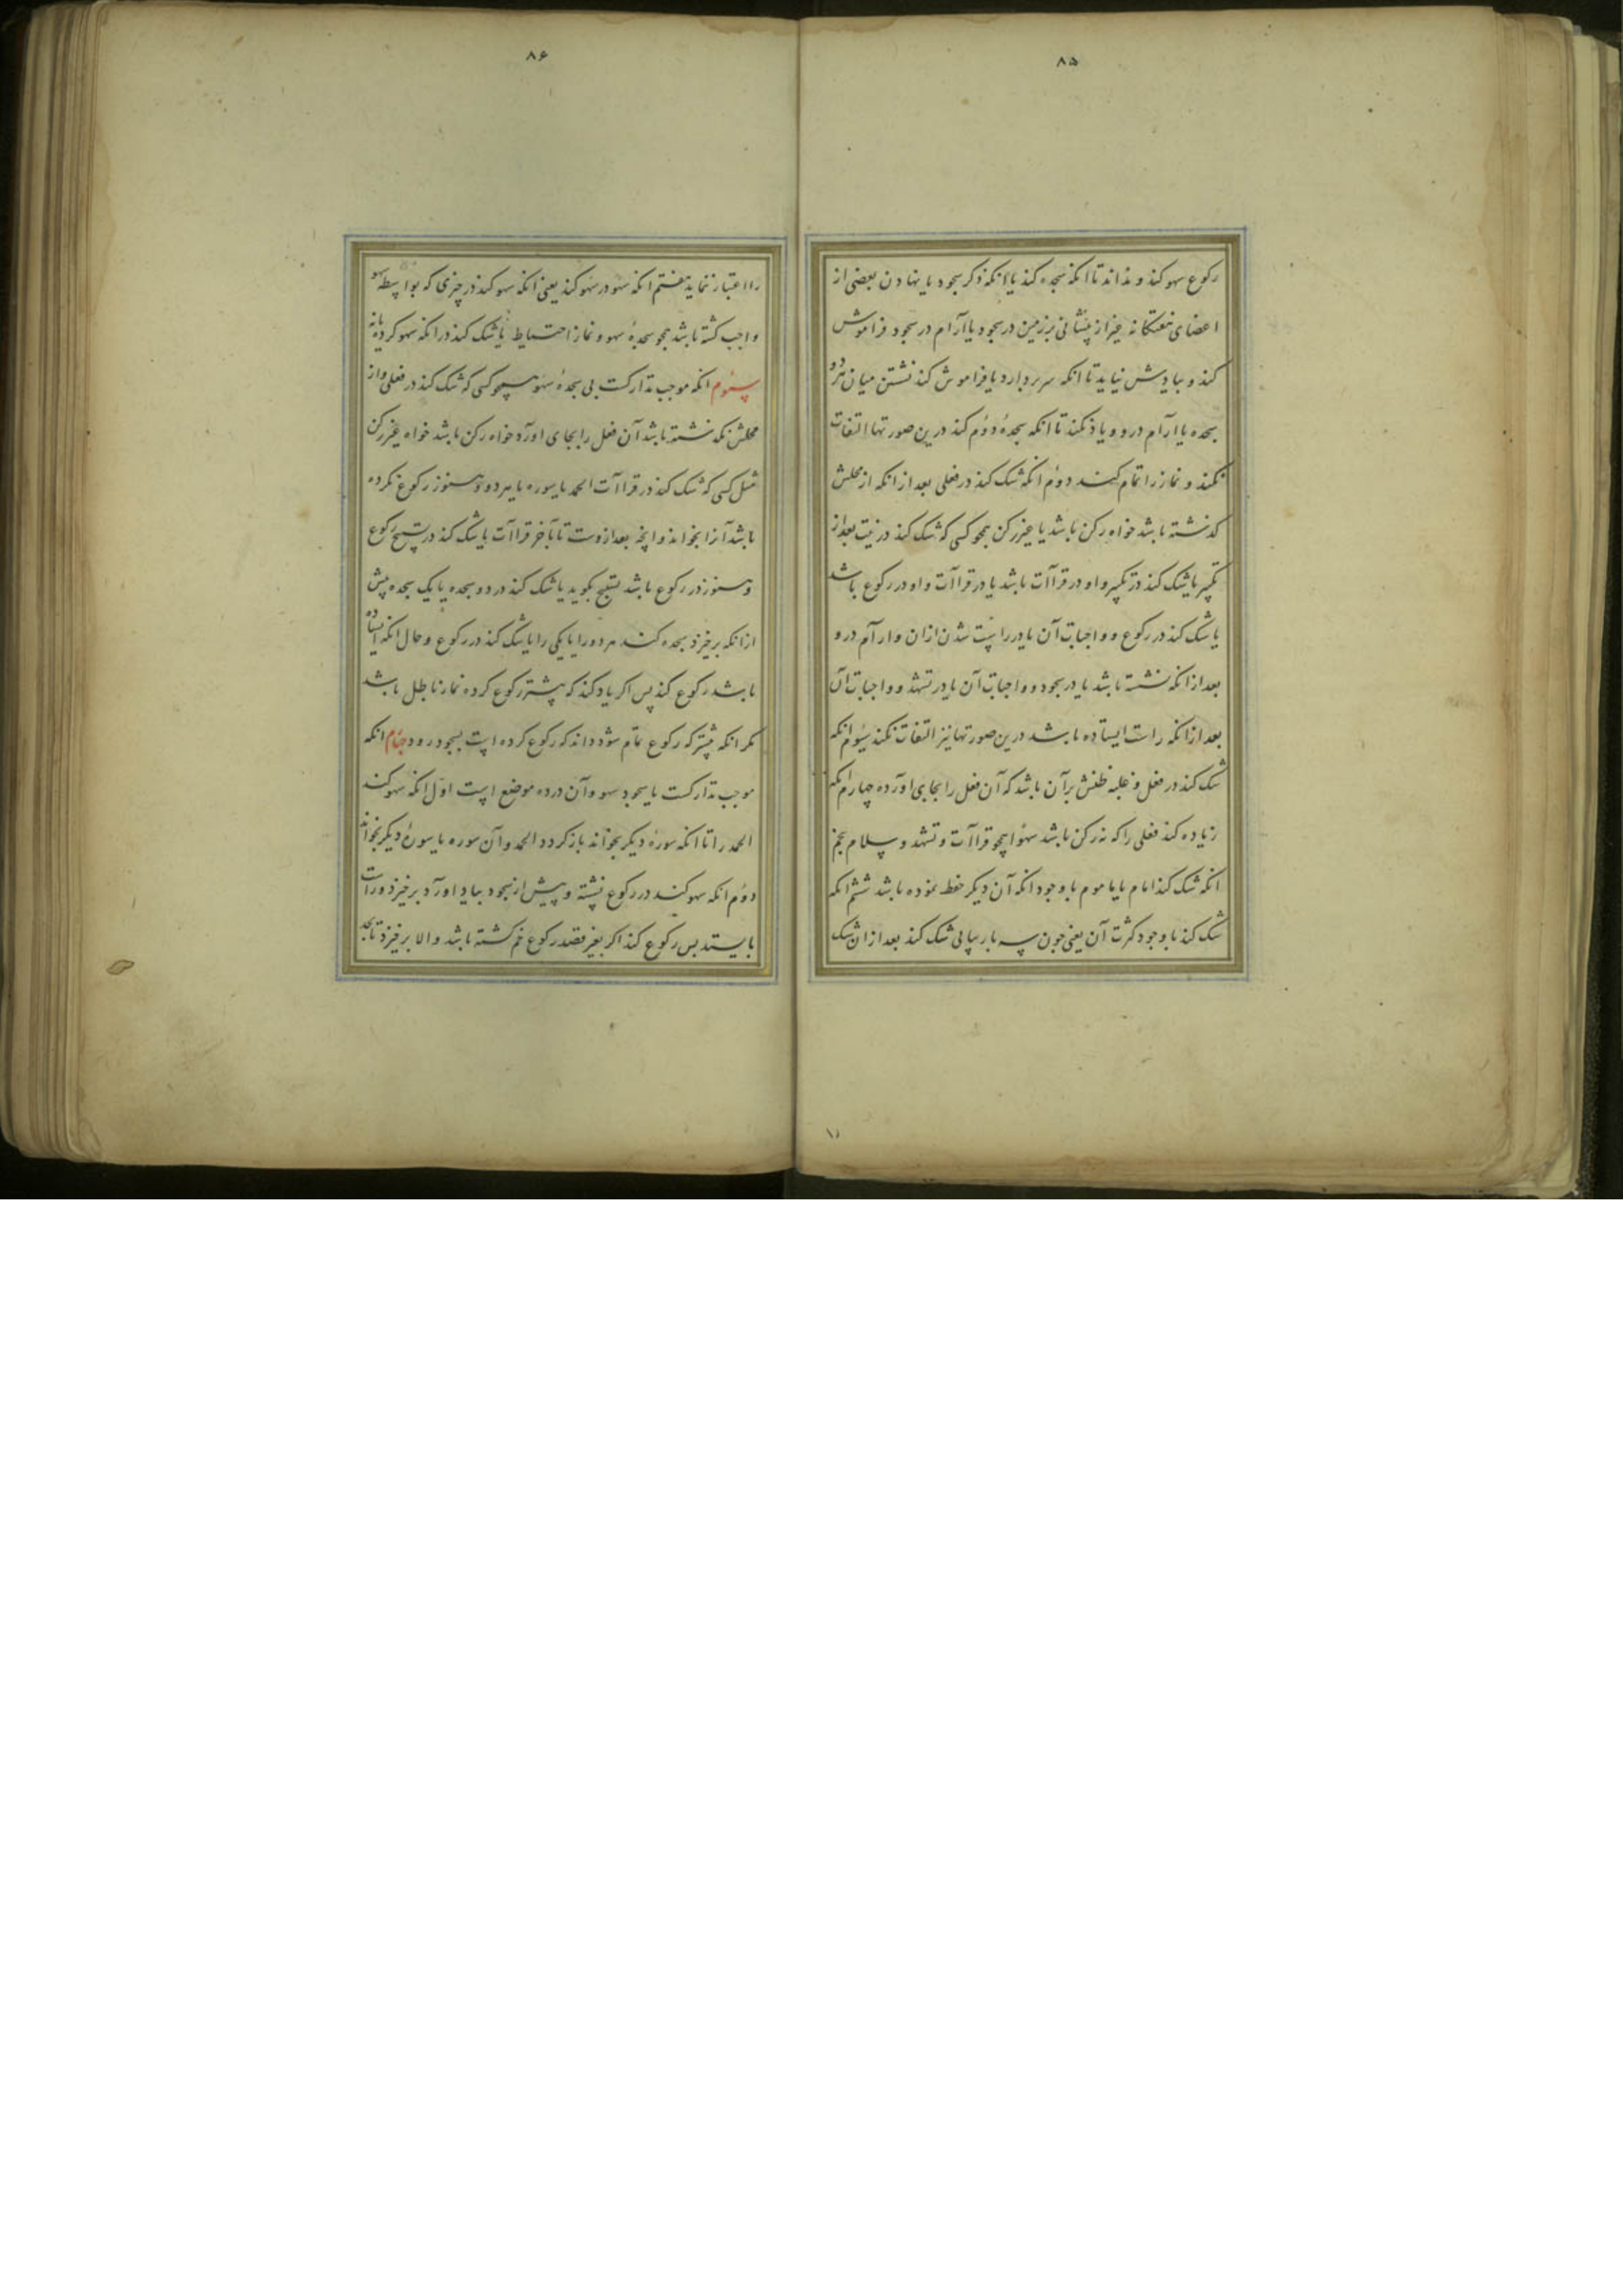 ۸۵
رکوع سهو کند و نداند تا انکه سجده کند یا انکه ذکر سجود یا نهادن بعضی از
اعضای هفتکانه غیر از پیشانی بر زمین در سجود یا آرام در سجود فراموش
کند و بیادش نیاید تا انکه سر بردارد یا فراموش کند نشستن میان هر دو
سجده یا آرام درو و یاد نکند تا انکه سجدهٔ دوُم کند درین صورتها التفات
نکند و نماز را تمام کند دوُم انکه شک کند در فعلی بعد از انکه از محلش
کذشته باشد خواه رکن باشد یا غیر رکن همچو کسی که شک کند در نیت بعد از
تکبیر یا شک کند در تکبیر و او در قراآت باشد یا در قراآت و او در رکوع باشد
یا شک کند در رکوع و واجبات آن یا در راست شدن ازان و ارآم درو
بعد از انکه نشسته باشد یا در سجود و واجبات آن یا در تشهد و واجبات آن
بعد از انکه راست ایستاده باشد درین صورتها نیز التفات نکند سیوُم انکه
شک کند در فعل و غلبه ظنش برآن باشد که آن فعل را بجای اورده چهارم انکه
زیاده کند فعلی را که نه رکن باشد سهوا همچو قراآت و تشهد و سلام پنجم
انکه شک کند امام یا ماموم با وجود انکه آن دیکر حفظ نموده باشد ششم انکه
شک کند با وجود کثرت آن یعنی چون سه بار پیاپی شک کند بعد ازان شک
۱۱
۸۶
را اعتبار ننماید هفتم انکه سهو در سهو کند یعنی انکه سهو کند در چیزی که بواسطه سهو
واجب کشته باشد همچو سجدهٔ سهو و نماز احتیاط یا شک کند در انکه سهو کرده یا نه
سیوُم انکه موجب تدارکست بی سجدهٔ سهو همچو کسی که شک کند در فعلی و از
محلش نکذشته باشد آن فعل را بجای اورد خواه رکن باشد خواه غیر رکن
مثل کسی که شک کند در قراآت الحمد یا سوره یا هر دو و هنوز رکوع نکرده
باشد آنرا بخواند و انچه بعد ازوست تا بآخر قراآت یا شک کند در تسبیح رکوع
و هنوز در رکوع باشد تسبیح بکوید یا شک کند در دو سجده یا یک سجده پیش
از انکه برخیزد سجده کند هر دو را یا یکی را یا شک کند در رکوع و حال انکه ایستاده
باشد رکوع کند پس اکر یاد کند که پیشتر رکوع کرده نماز باطل باشد
مکر انکه پیشتر که رکوع تمام شود داند که رکوع کرده است بسجود رود چهارم انکه
موجب تدارکست با سجود سهو و آن در ده موضع است اول انکه سهو کند
الحمد را تا انکه سورهٔ دیکر بخواند باز کردد الحمد و آن سوره یا سورهٔ دیکر بخواند
دوُم انکه سهو کند در رکوع نشسته و پیش از سجود بیاد اورد برخیزد و راست
بایستد پس رکوع کند اکر بغیر قصد رکوع خم کشته باشد والا برخیزد تا بحد